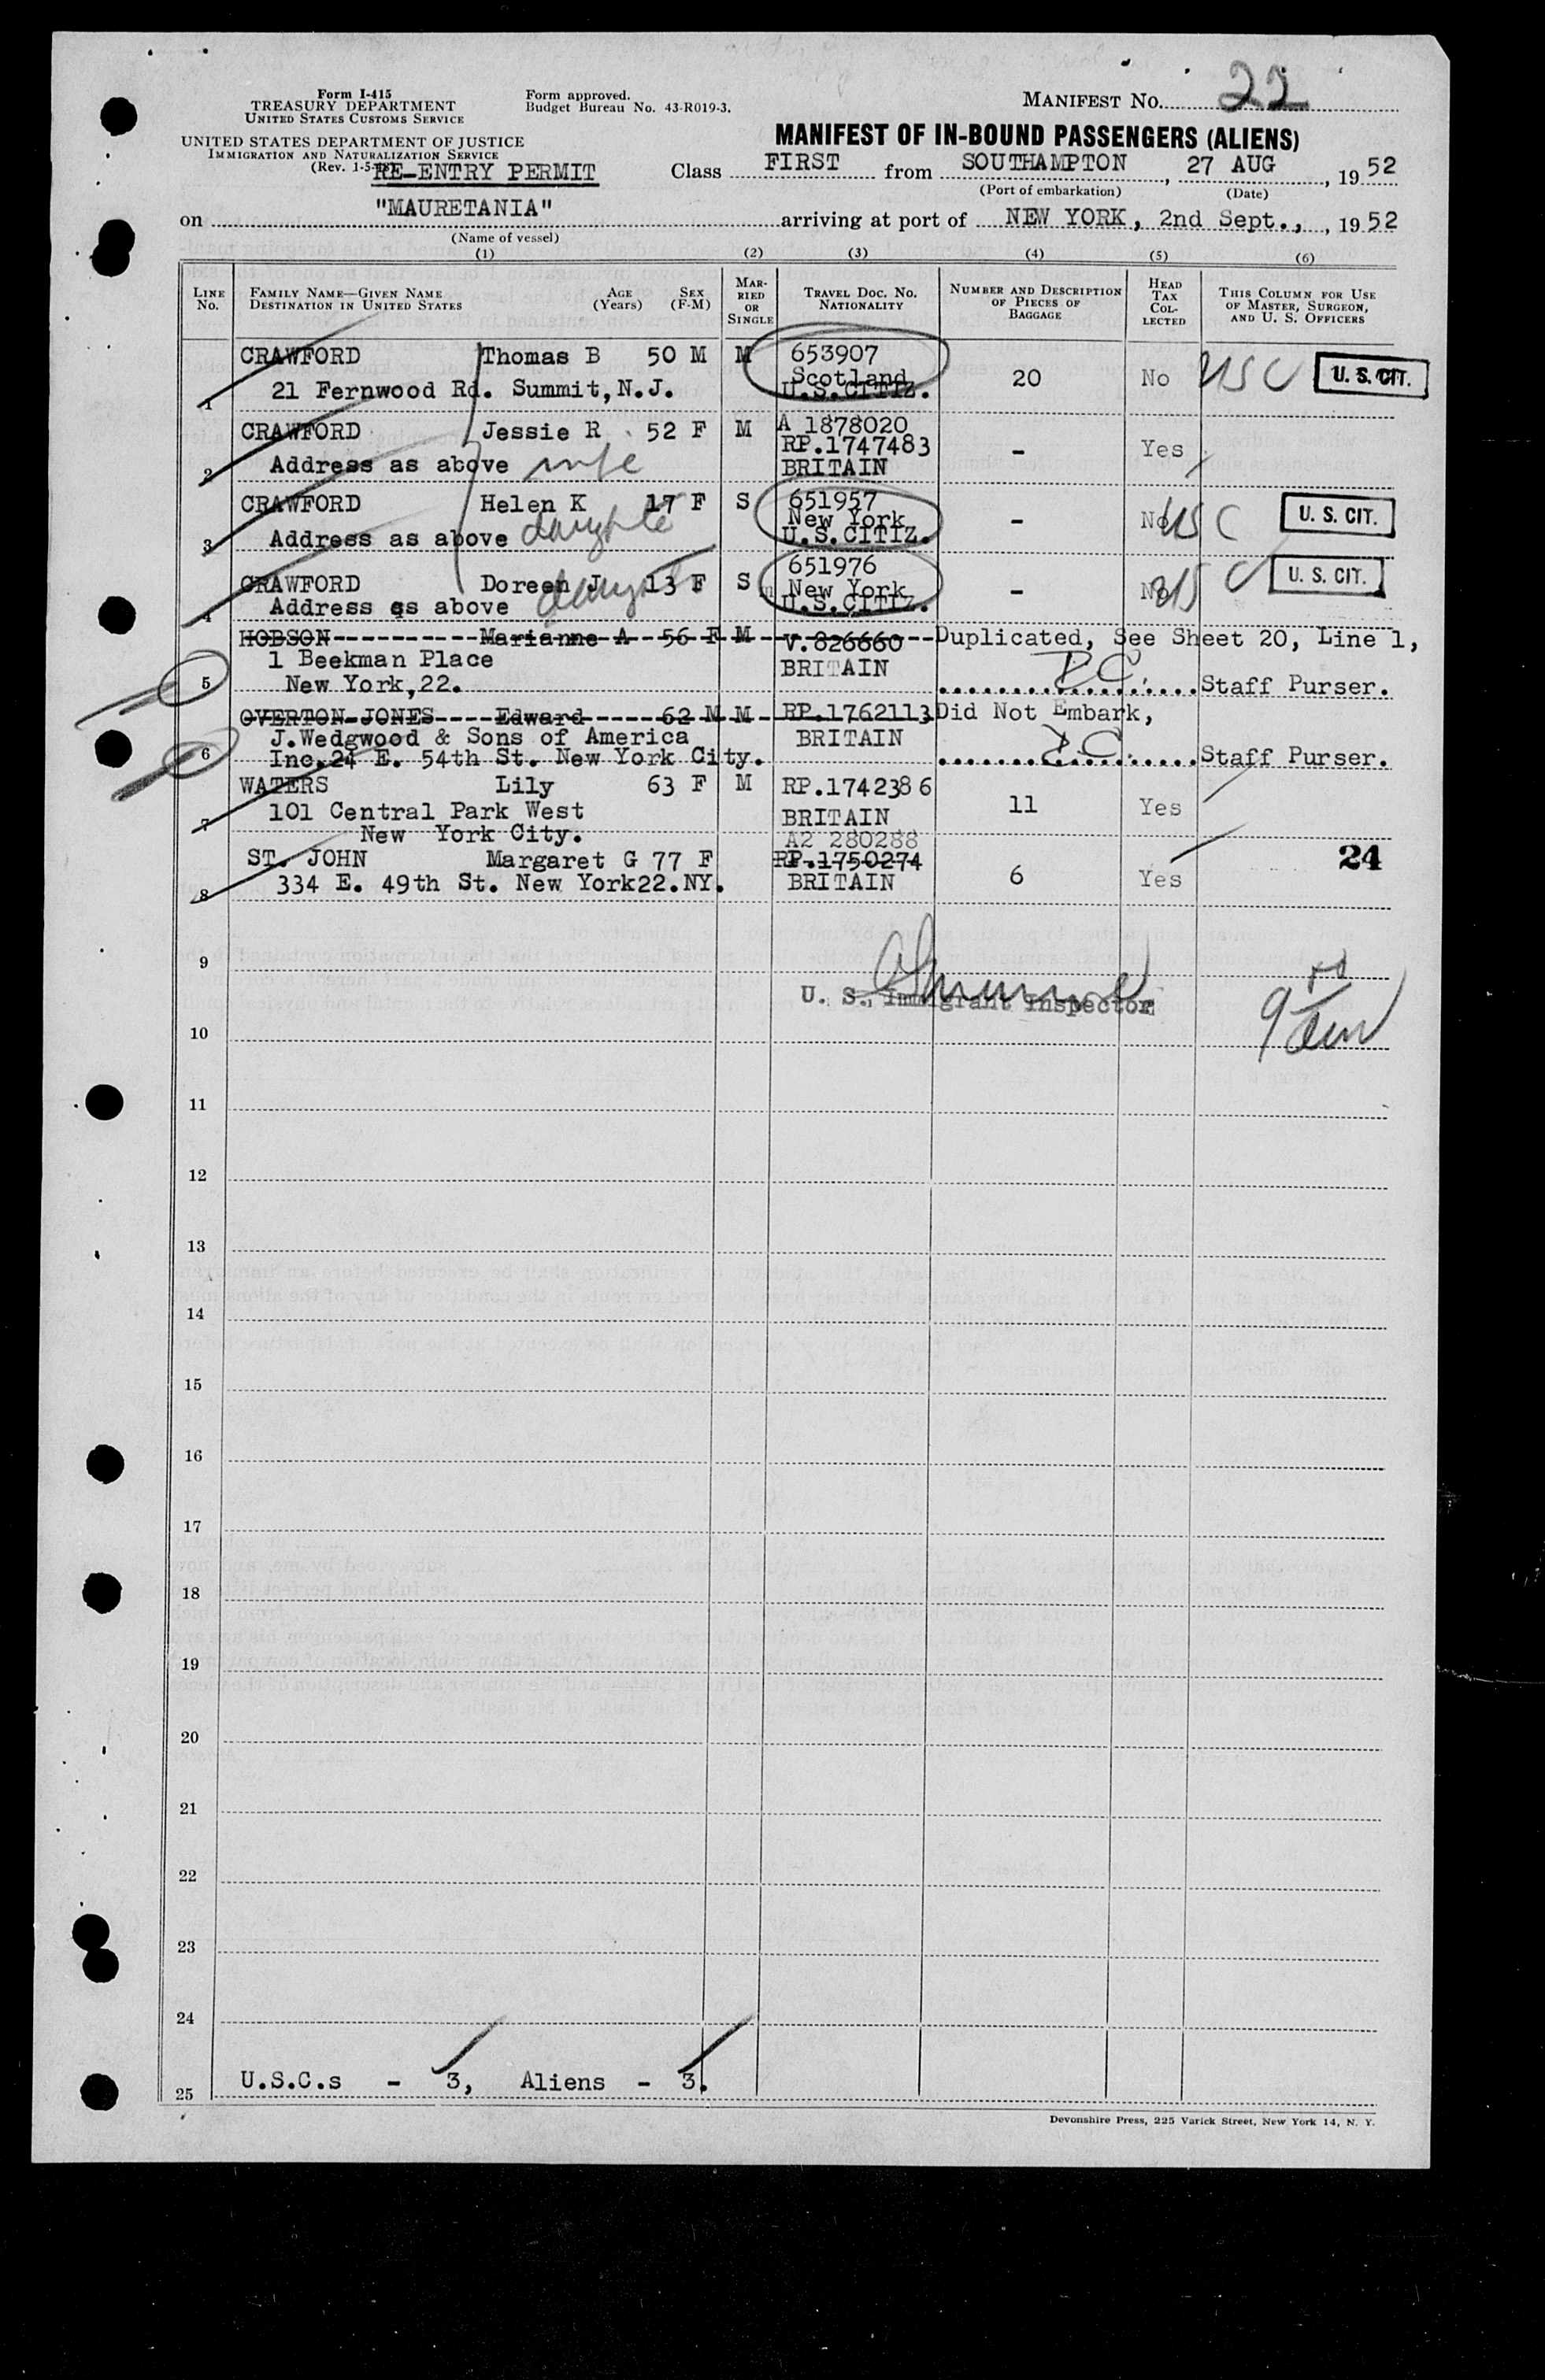 Form I-415
TREASURY DEPARTMENT
UNITED STATES CUSTOMS SERVICE
UNITED STATES DEPARTMENT OF JUSTICE
IMMIGRATION AND NATURALIZATION SERVICE
(Rev. 1-5-
Form approved.
Budget Bureau No. 43-R019-3.
MANIFEST No. 22
MANIFEST OF IN-BOUND PASSENGERS (ALIENS)
RE-ENTRY PERMIT
Class FIRST from SOUTHAMPTON, 27 AUG, 1952
(Port of embarkation) (Date)
on "MAURETANIA" arriving at port of NEW YORK, 2nd Sept., 1952
(Name of vessel)
(1) (2) (3) (4) (5) (6)
LINE No.
FAMILY NAME—GIVEN NAME
DESTINATION IN UNITED STATES
AGE (Years)
SEX (F-M)
MARRIED OR SINGLE
TRAVEL DOC. NO. NATIONALITY
NUMBER AND DESCRIPTION OF PIECES OF BAGGAGE
HEAD TAX COLLECTED
THIS COLUMN FOR USE OF MASTER, SURGEON, AND U. S. OFFICERS
1 CRAWFORD Thomas B 50 M M 653907 20 No USC U. S. CIT.
Scotland
21 Fernwood Rd. Summit, N.J. U.S.CITIZ.
2 CRAWFORD Jessie R 52 F M A 1878020
RP.1747483 - Yes
Address as above wife BRITAIN
3 CRAWFORD Helen K 17 F S 651957 - No USC U. S. CIT.
New York
Address as above daughter U.S.CITIZ.
4 CRAWFORD Doreen J 13 F S 651976 - No USC U. S. CIT.
New York
Address as above daught U.S.CITIZ.
5 HOBSON----------Marianne A 56 F M V.826660 Duplicated, See Sheet 20, Line 1,
1 Beekman Place BRITAIN
New York,22. Staff Purser.
6 OVERTON-JONES----Edward-----62 M M RP.1762113 Did Not Embark,
J.Wedgwood & Sons of America BRITAIN
Inc,24 E. 54th St. New York City. Staff Purser.
7 WATERS Lily 63 F M RP.1742386 11 Yes
101 Central Park West BRITAIN
New York City.
A2 280288
8 ST. JOHN Margaret G 77 F RP.1750274 6 Yes 24
334 E. 49th St. New York22.NY. BRITAIN
9
U. S. Immigrant Inspector
10
11
12
13
14
15
16
17
18
19
20
21
22
23
24
25 U.S.C.s - 3, Aliens - 3.
Devonshire Press, 225 Varick Street, New York 14, N. Y.